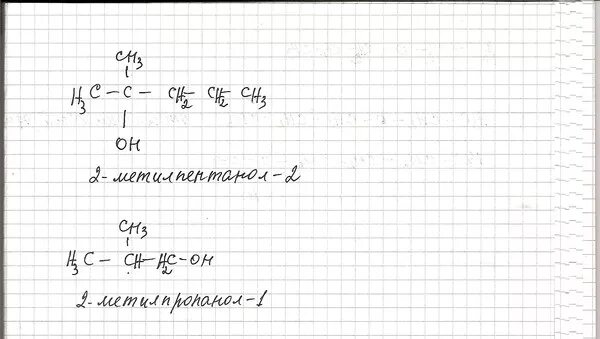 CH3
H3C – C – CH2 – CH2 CH3
OH
2-метилпентанол-2
CH3
H3C – CH – H2C – OH
2-метилпропанол-1